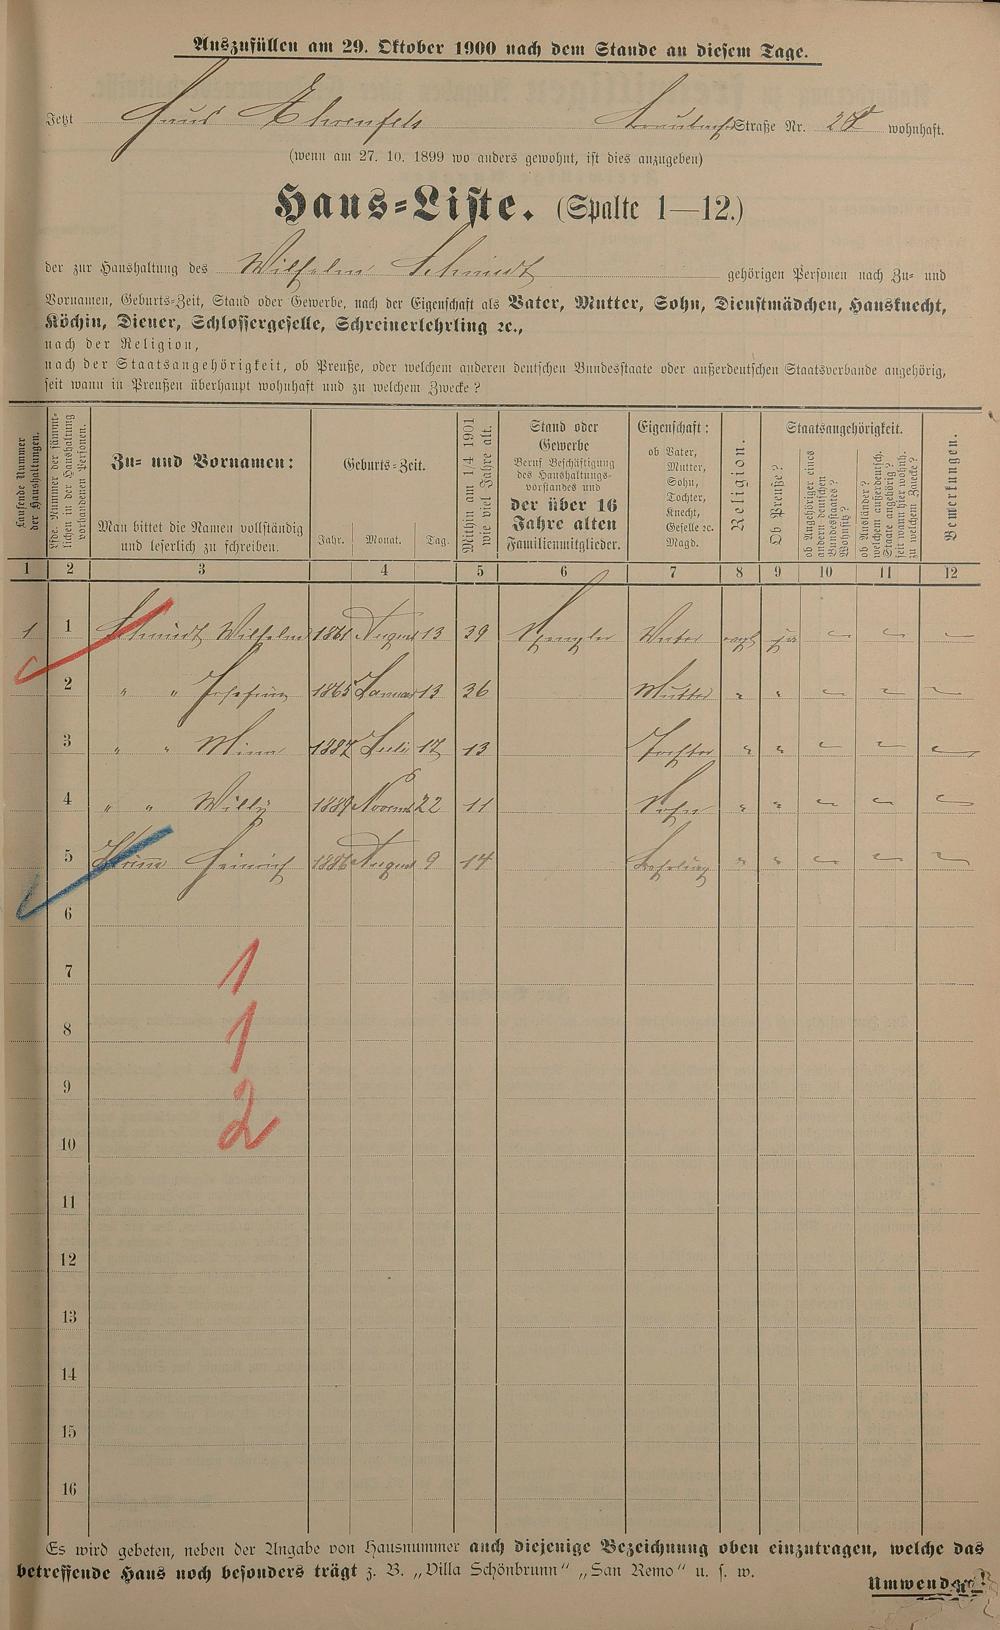 Auszufüllen am 29. Oktober 1900 nach dem Stande an diesem Tage.
Jetzt Haus Ehrenfels Straße Nr. wohnhaft.
(wenn am 27. 10. 1899 wo anders gewohnt, ist dies anzugeben)
Haus-Liste. (Spalte 1—12.)
der zur Haushaltung des Wilhelm Schmidt gehörigen Personen nach Zu- und
Vornamen, Geburts-Zeit, Stand oder Gewerbe, nach der Eigenschaft als Vater, Mutter, Sohn, Dienstmädchen, Hausknecht,
Köchin, Diener, Schlossergeselle, Schreinerlehrling ꝛc.,
nach der Religion,
nach der Staatsangehörigkeit, ob Preuße, oder welchem anderen deutschen Bundesstaate oder außerdeutschen Staatsverbande angehörig,
seit wann in Preußen überhaupt wohnhaft und zu welchem Zwecke?
Laufende Nummer der Haushaltungen.
Lfde. Nummer der sämmtlichen in der Haushaltung vorhandenen Personen.
Zu- und Vornamen:
Man bittet die Namen vollständig
und leserlich zu schreiben.
Geburts-Zeit.
Jahr. Monat. Tag.
Mithin am 1/4 1901
wie viel Jahre alt.
Stand oder
Gewerbe
Beruf Beschäftigung
des Haushaltungs-
vorstandes und
der über 16
Jahre alten
Familienmitglieder.
Eigenschaft:
ob Vater,
Mutter,
Sohn,
Tochter,
Knecht,
Geselle ꝛc.
Magd.
Religion.
Staatsangehörigkeit.
Ob Preuße?
ob Angehöriger eines
andern deutschen
Bundesstaates?
Wohnsitz?
ob Ausländer?
welchem außerdeutsch.
Staate angehörig?
seit wann hier wohnh.
zu welchem Zwecke?
Bemerkungen.
1 2 3 4 5 6 7 8 9 10 11 12
1 1 Schmidt Wilhelm 1861 August 13 39 Spengler Vater evgl ja — — —
2 " " Josefine 1865 Januar 13 36 Mutter " " — — —
3 " " Mina 1887 Juli 17 13 Tochter " " — — —
4 " " Willy 1889 Novemb 22 11 Sohn " " — — —
5 Heinrich 1886 August 9 14 Lehrling " " — — —
6
7 1
8 1
9
10 2
11
12
13
14
15
16
Es wird gebeten, neben der Angabe von Hausnummer auch diejenige Bezeichnung oben einzutragen, welche das
betreffende Haus noch besonders trägt z. B. „Villa Schönbrunn" „San Remo" u. s. w.
Umwenden!